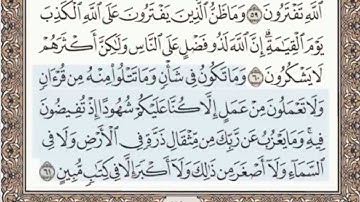 ٱللَّهِ تَفۡتَرُونَ ٥٩ وَمَا ظَنُّ ٱلَّذِينَ يَفۡتَرُونَ عَلَى ٱللَّهِ ٱلۡكَذِبَ
يَوۡمَ ٱلۡقِيَٰمَةِۗ إِنَّ ٱللَّهَ لَذُو فَضۡلٍ عَلَى ٱلنَّاسِ وَلَٰكِنَّ أَكۡثَرَهُمۡ
لَا يَشۡكُرُونَ ٦٠ وَمَا تَكُونُ فِي شَأۡنٖ وَمَا تَتۡلُواْ مِنۡهُ مِن قُرۡءَانٖ
وَلَا تَعۡمَلُونَ مِنۡ عَمَلٍ إِلَّا كُنَّا عَلَيۡكُمۡ شُهُودًا إِذۡ تُفِيضُونَ
فِيهِۚ وَمَا يَعۡزُبُ عَن رَّبِّكَ مِن مِّثۡقَالِ ذَرَّةٖ فِي ٱلۡأَرۡضِ وَلَا فِي
ٱلسَّمَآءِ وَلَآ أَصۡغَرَ مِن ذَٰلِكَ وَلَآ أَكۡبَرَ إِلَّا فِي كِتَٰبٖ مُّبِينٍ ٦١